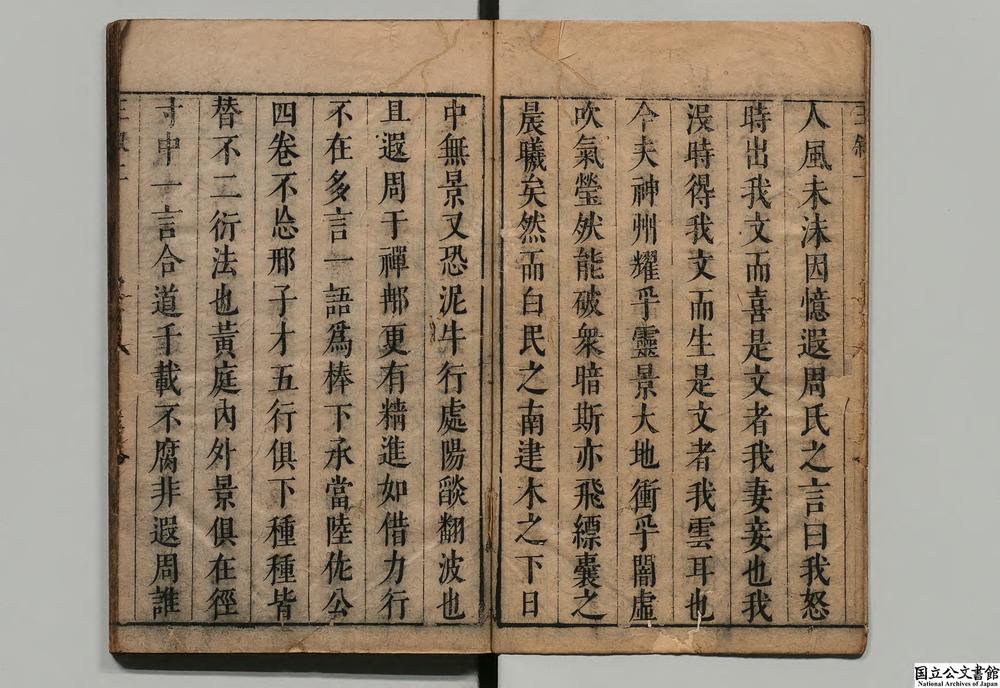 人風未沫因憶遐周氏之言曰我怒
時出我文而喜是文者我妻妾也我
沒時得我文而生是文者我雲耳也
今夫神州耀乎靈景大地衝乎闇虛
吹氣瑩然能破衆暗斯亦飛縹囊之
晨曦矣然而白民之南建木之下日
中無景又恐泥牛行處陽燄翻波也
且遐周于禪那更有精進如借力行
不在多言一語爲棒下承當陸佗公
四卷不忩邢子才五行俱下種種皆
替不二衍法也黃庭內外景俱在徑
寸中一言合道千載不腐非遐周誰
国立公文書館
National Archives of Japan